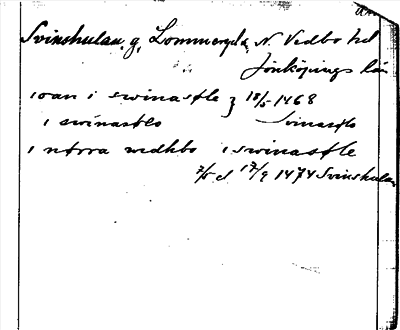 Svinshulan, g, Lommaryds, N. Vedbo hd
Jönköpings län
ioan i swinastle } 18/5 1468
i swinastlo Svinastlo
i nørra wedhbo i swinastle
1474 Svinshulan